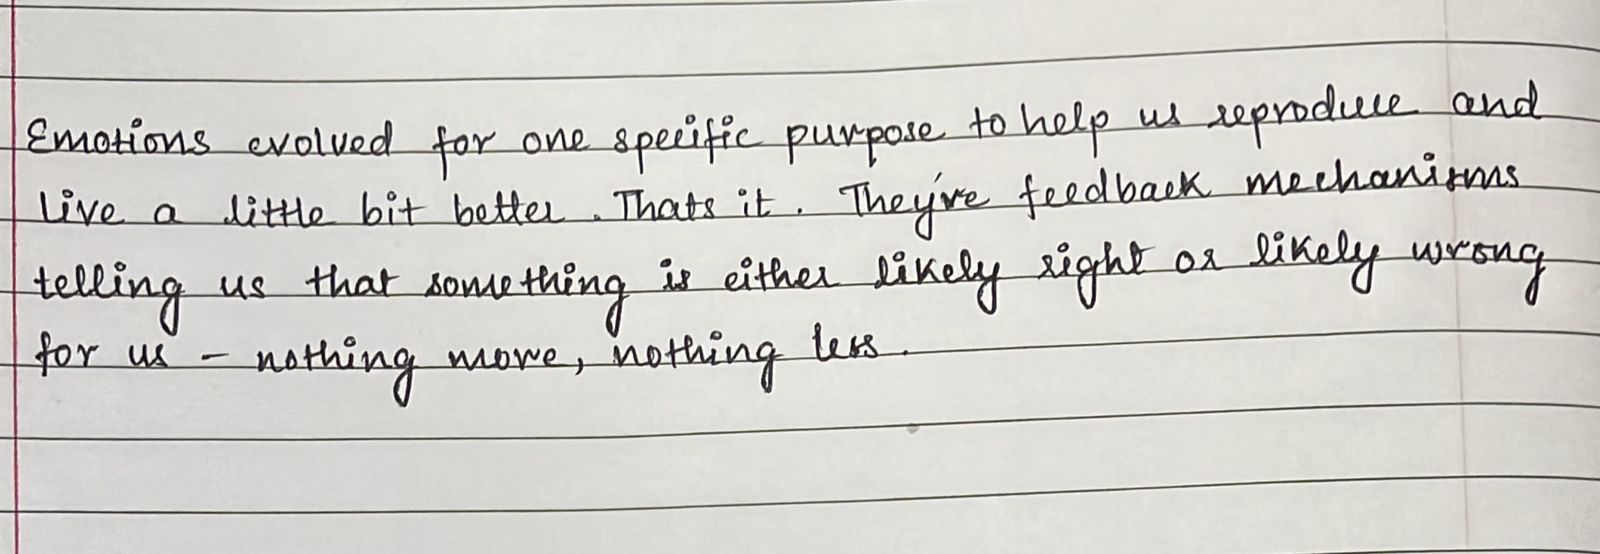 Emotions evolved for one specific purpose to help us reproduce and
live a little bit better. Thats it. They're feedback mechanisms
telling us that something is either likely right or likely wrong
for us - nothing more, nothing less.